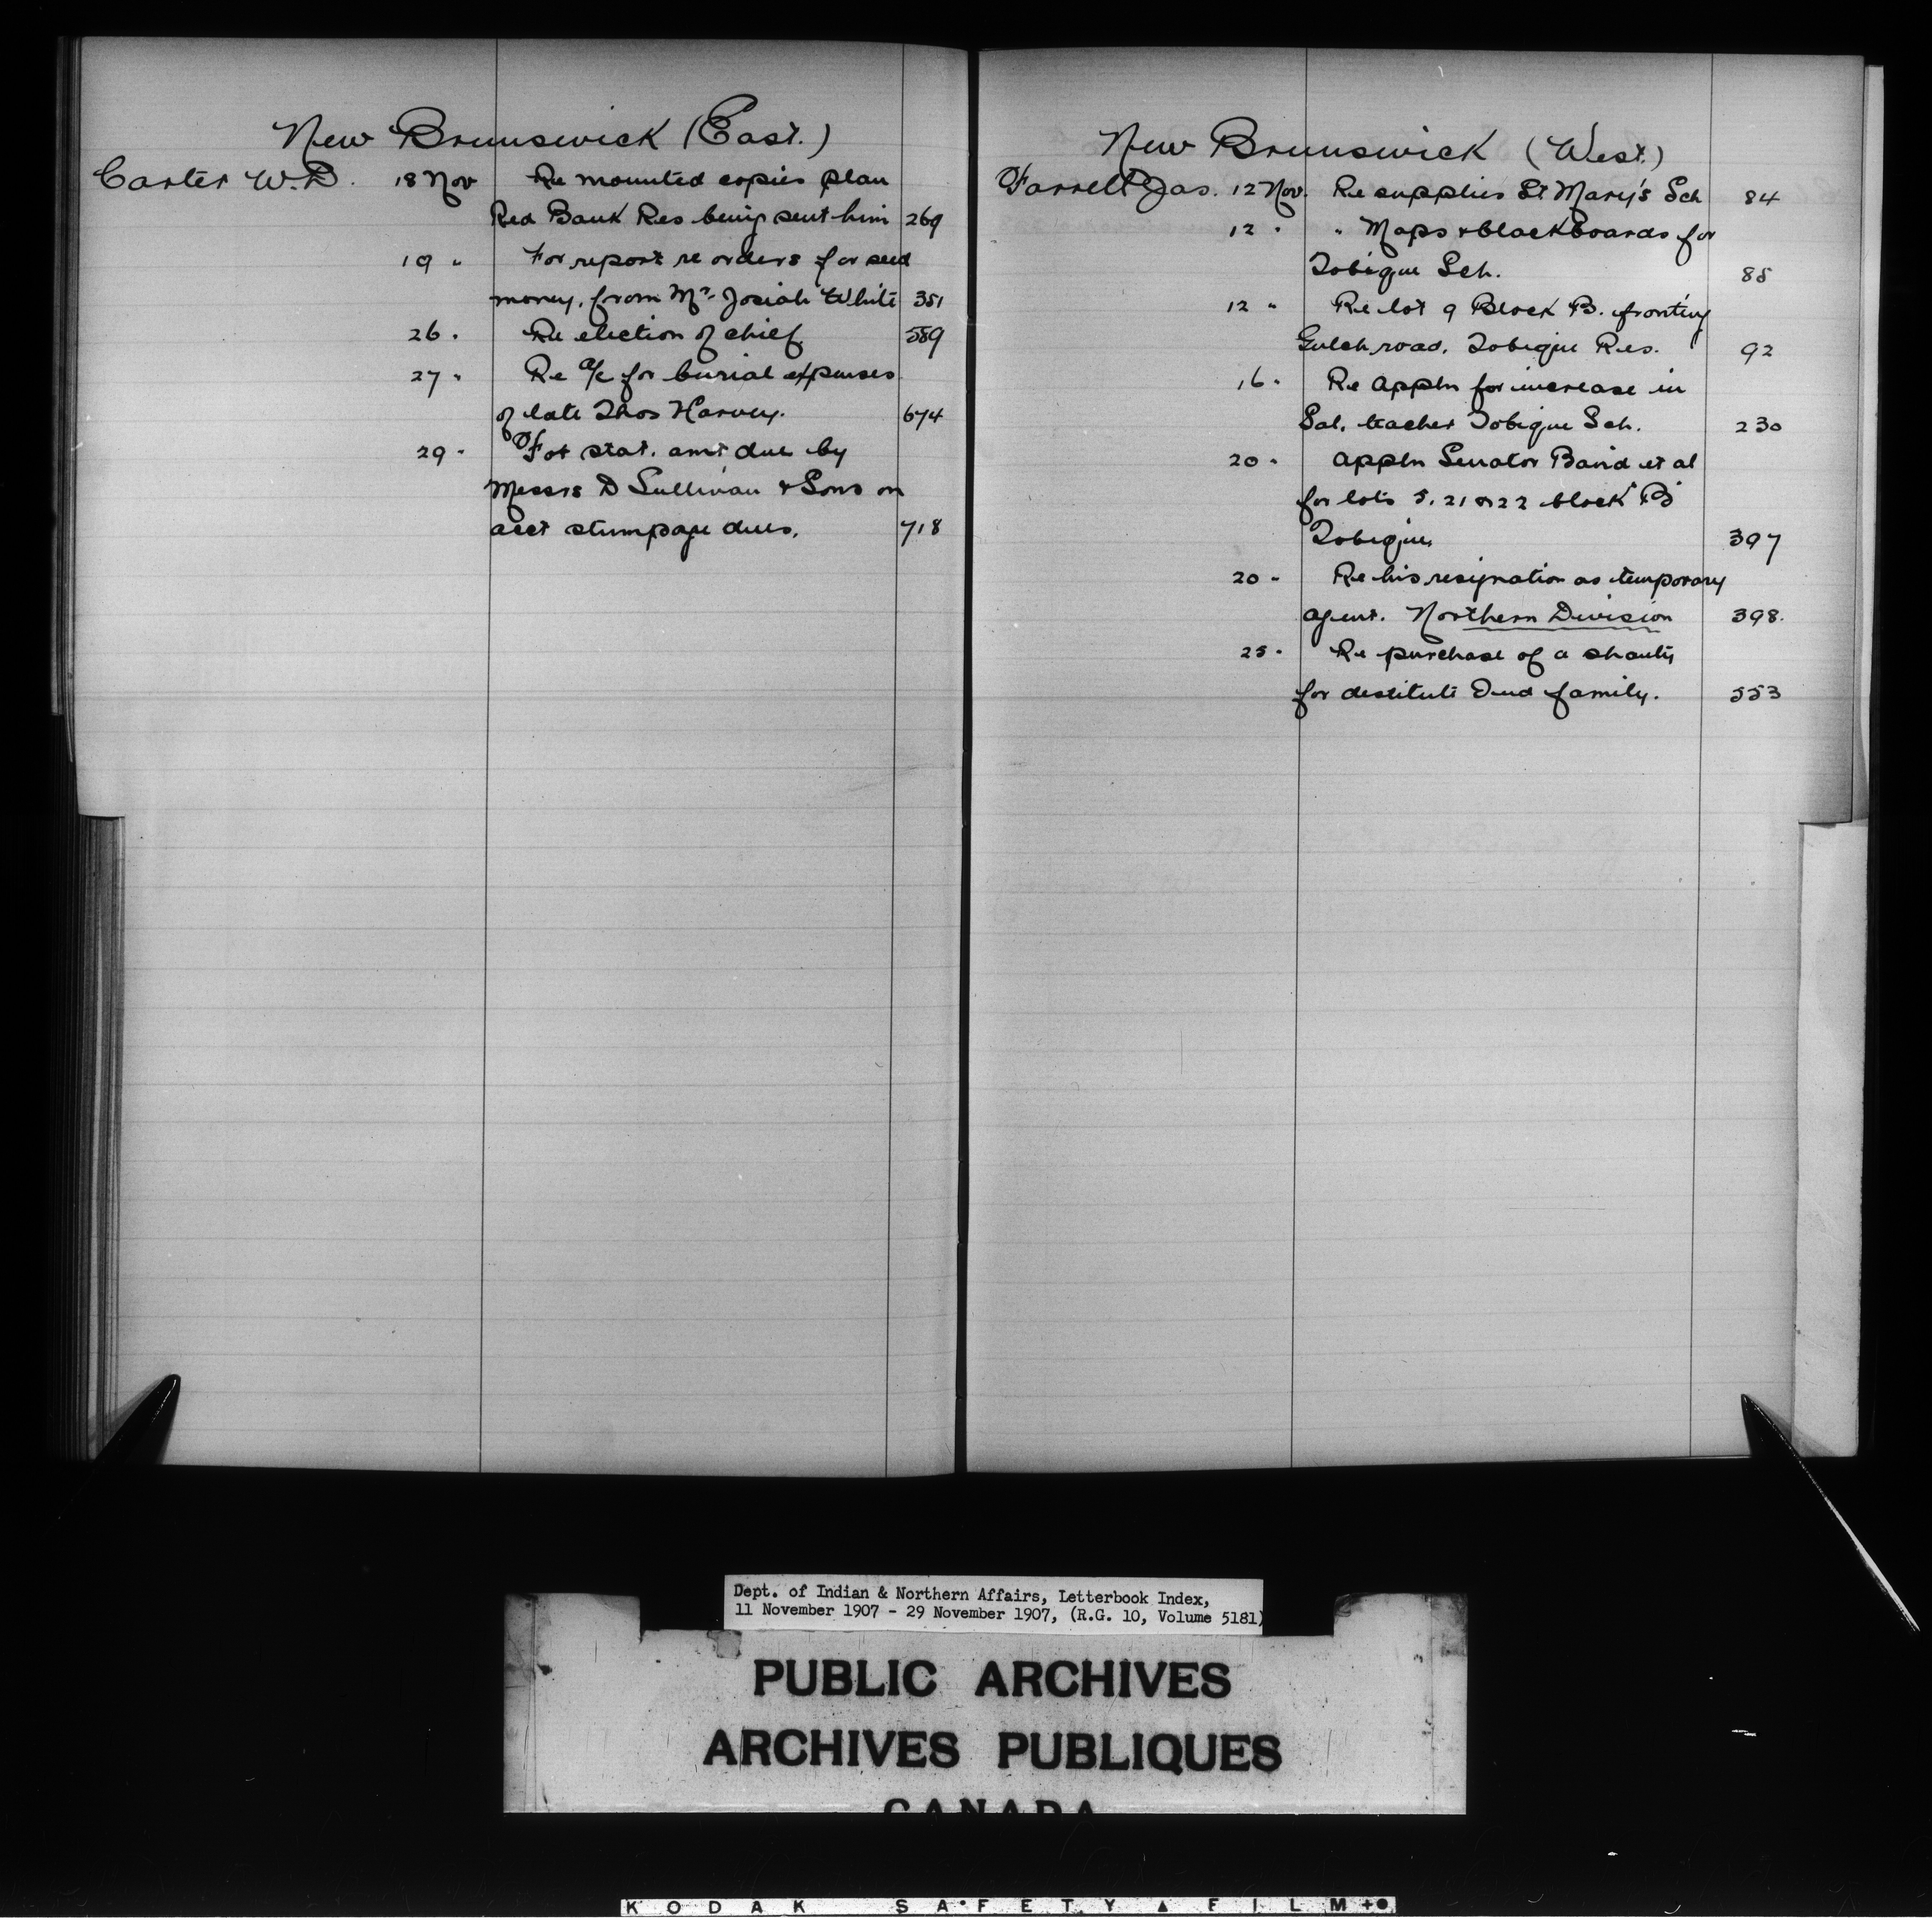 New Brunswick (East.)
Carter W.D. 18 Nov Re mounted copies plan
Red Bank Res being sent him 269
19 " For report re orders for seed
money, from Mr. Josiah White 351
26 " Re election of chief. 559
27 " Re a/c for burial expenses
of late Thos Harvey. 674
29 " For stat. amt due by
Messrs D Sullivan & Sons on
acct stumpage dues. 718
New Brunswick (West.)
Farrell Jas. 12 Nov. Re supplies St Mary's Sch 84
12 " " Maps & blackboards for
Tobique Sch. 85
12 " Re lot 9 Block B. fronting
Gulch road, Tobique Res. 92
16 " Re appln for increase in
Sal. teacher Tobique Sch. 230
20 " Appln Senator Baird et al
for lots 5, 21 & 22 block "B"
Tobique 397
20 " Re his resignation as temporary
agent. Northern Division 398.
25 " Re purchase of a shanty
for destitute Ind family. 553
Dept. of Indian & Northern Affairs, Letterbook Index,
11 November 1907 - 29 November 1907, (R.G. 10, Volume 5181)
PUBLIC ARCHIVES
ARCHIVES PUBLIQUES
CANADA
KODAK SAFETY FILM